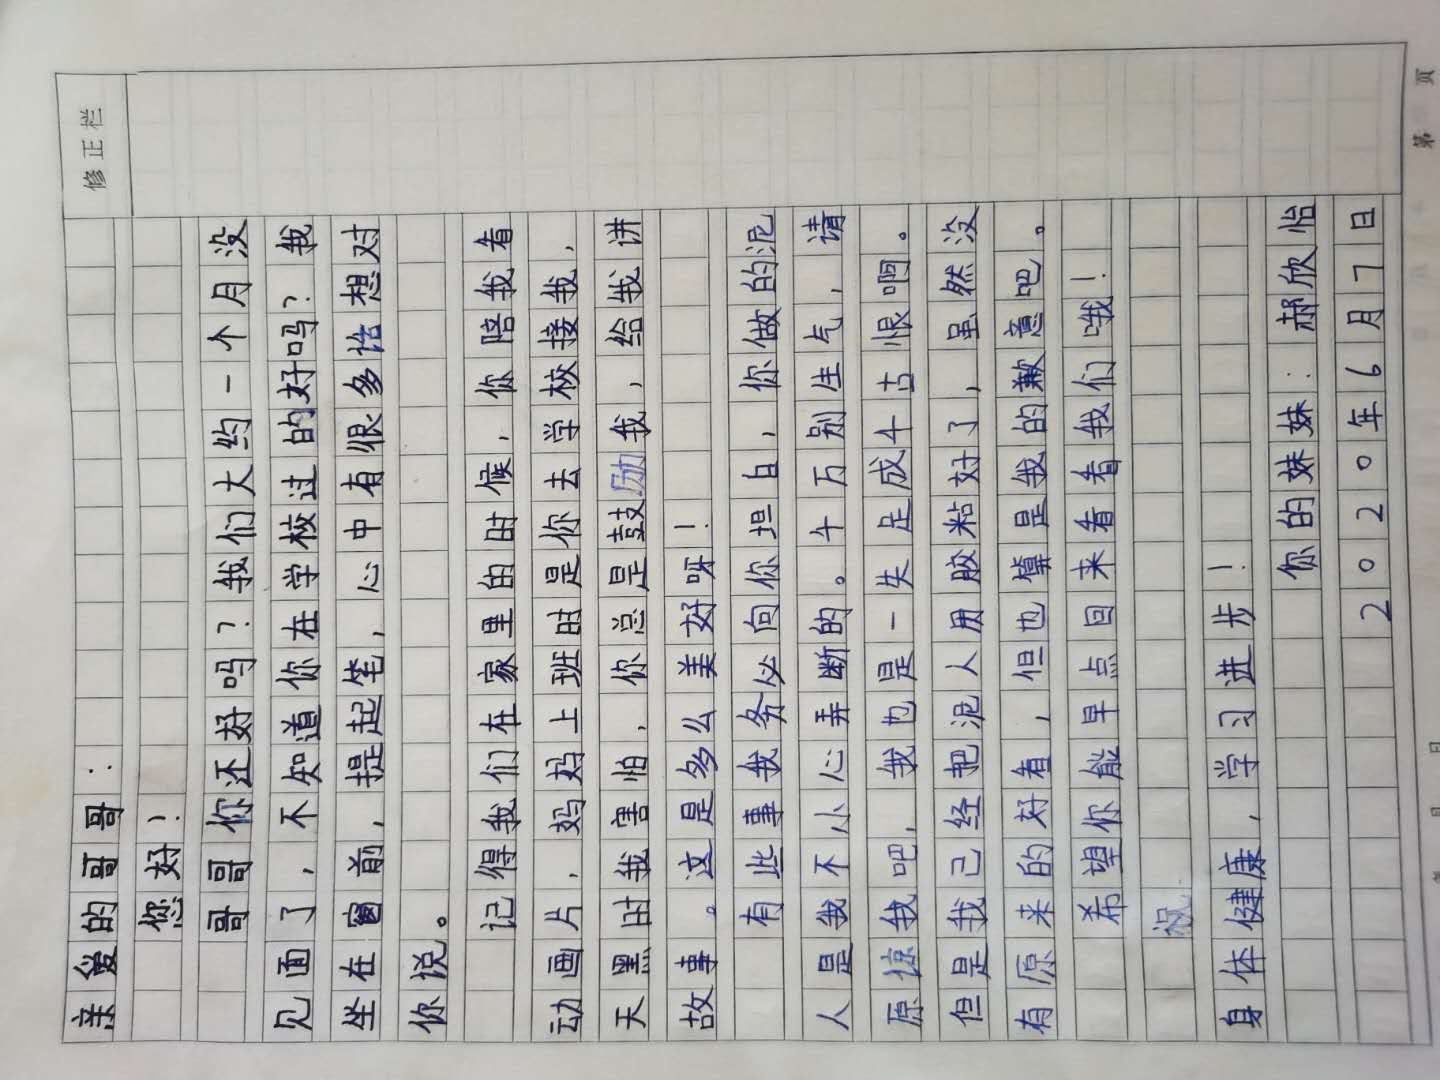 修正栏
亲爱的哥哥:
您好!
哥哥你还好吗?我们大约一个月没
见面了,不知道你在学校过的好吗?我
坐在窗前,提起笔,心中有很多话想对
你说。
记得我们在家里的时候,你陪我看
动画片,妈妈上班时是你去学校接我,
天黑时我害怕,你总是鼓励我,给我讲
故事。这是多么美好呀!
有些事我务必向你坦白,你做的泥
人是我不小心弄断的。千万别生气,请
原惊我吧,我也是一失足成千古恨啊。
但是我已经把泥人用胶粘好了,虽然没
有原来的好看,但也算是我的歉意吧。
希望你能早点回来看看我们哦!
祝
身体健康,学习进步!
你的妹妹:郝欣怡
2020年6月7日
年 月 日
第 页